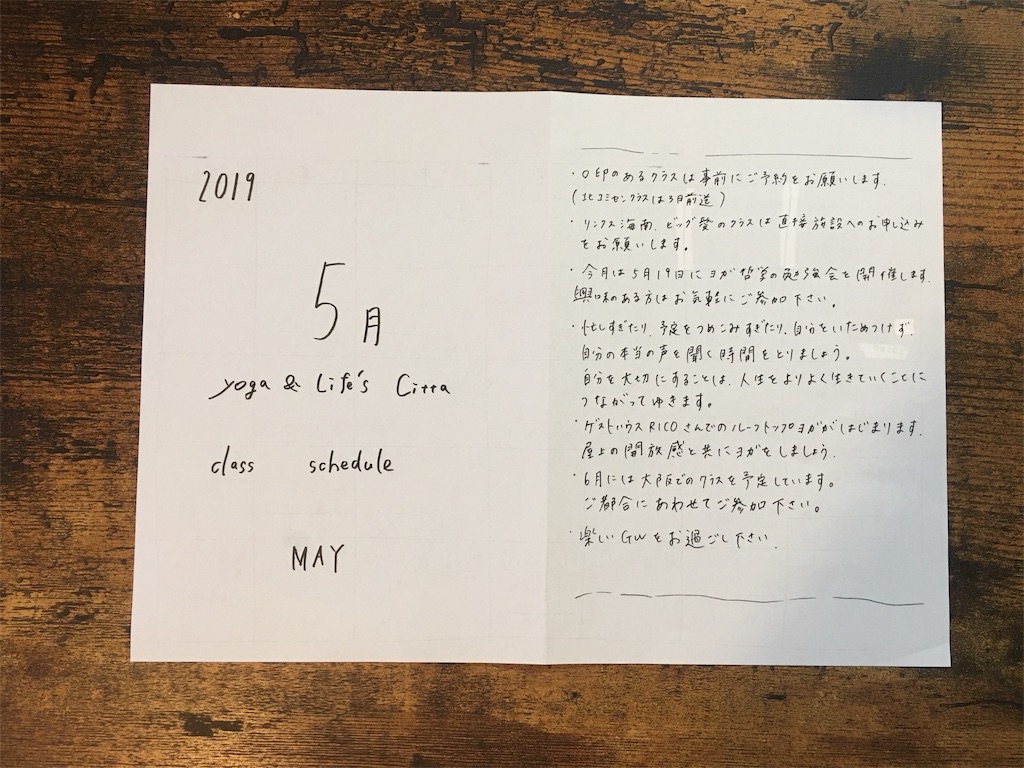 2019
5月
yoga & Life's Citta
class schedule
MAY
・○印のあるクラスは事前にご予約をお願いします.
(北コミセンクラスは3日前迄)
・リンクス海南、ビッグ愛のクラスは直接施設へのお申し込み
をお願いします。
・今月は5月19日にヨガ哲学の勉強会を開催します.
興味のある方はお気軽にご参加下さい。
・忙しすぎたり、予定をつめこみすぎたり、自分をいためつけず、
自分の本当の声を聞く時間をとりましょう。
自分を大切にすることは、人生をよりよく生きていくことに
つながってゆきます。
・ゲストハウスRICOさんでのルーフトップヨガがはじまります.
屋上の開放感と共にヨガをしましょう.
・6月には大阪でのクラスを予定しています。
ご都合にあわせてご参加下さい。
・楽しいGWをお過ごし下さい.